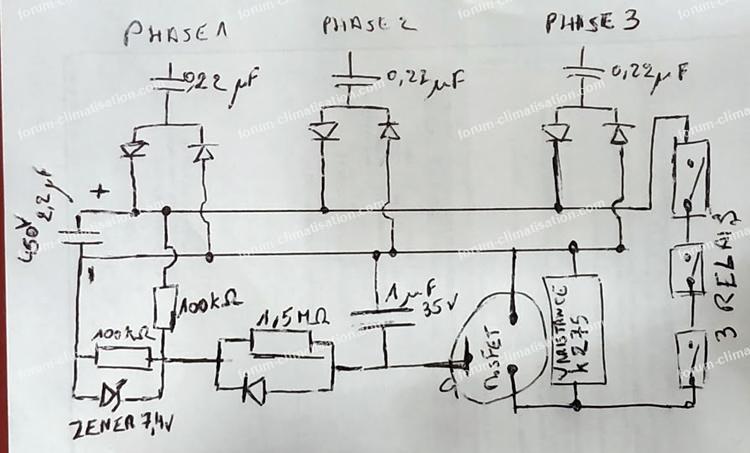 PHASE 1
PHASE 2
PHASE 3
0,22 µF
0,22 µF
0,22 µF
+
450V
2,2µF
-
100KΩ
100KΩ
1,5MΩ
1 µF
35V
G
MOSFET
VARISTANCE
K275
3 RELAIS
ZENER 7,4V
forum-climatisation.com